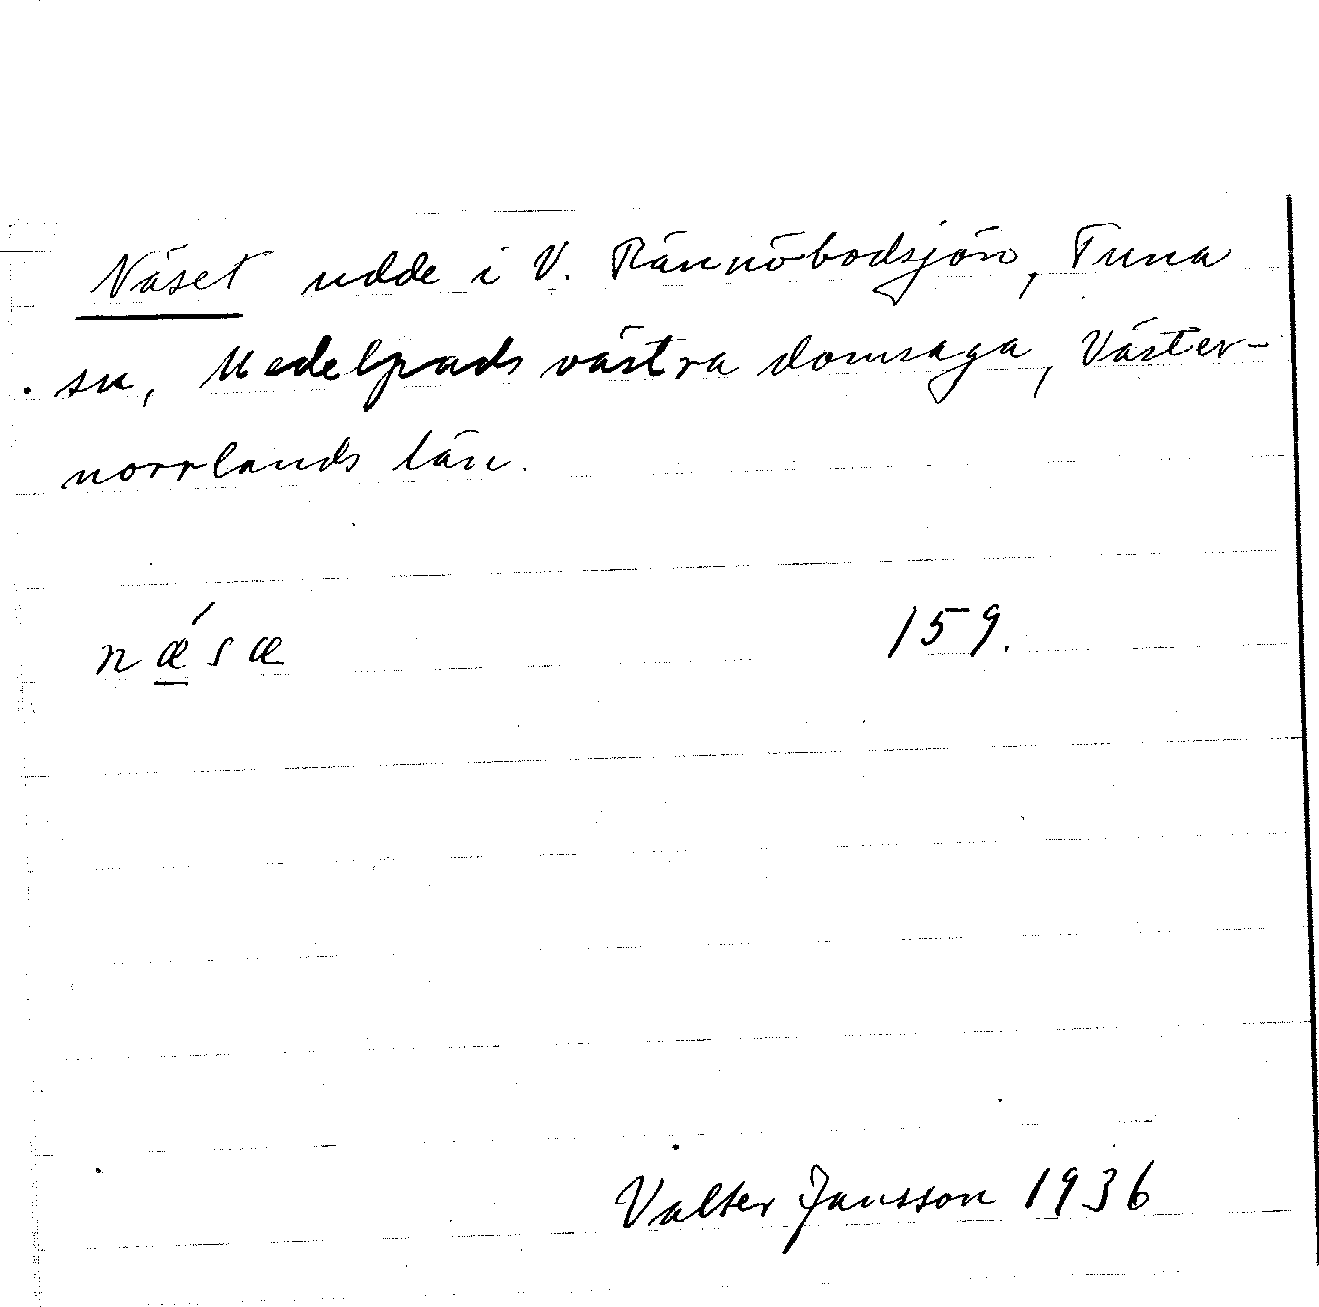 Näset udde i V. Rännöbodsjön, Tuna
sn, Medelpads västra domsaga, Väster-
norrlands län.
nǽ̲sæ 159.
Valter Jansson 1936